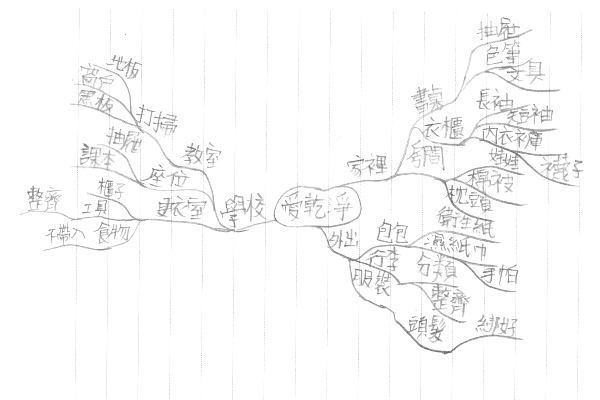 愛乾淨
學校
教室
打掃
地板
窗戶
黑板
座位
抽屜
課本
更衣室
櫃子
工具
整齊
食物
不帶入
家裡
書桌
抽屜
色筆
文具
衣櫃
長袖
短袖
內衣褲
襪子
房間
娃娃
棉被
枕頭
外出
包包
衛生紙
濕紙巾
手帕
行李
分類
服裝
整齊
頭髮
綁好